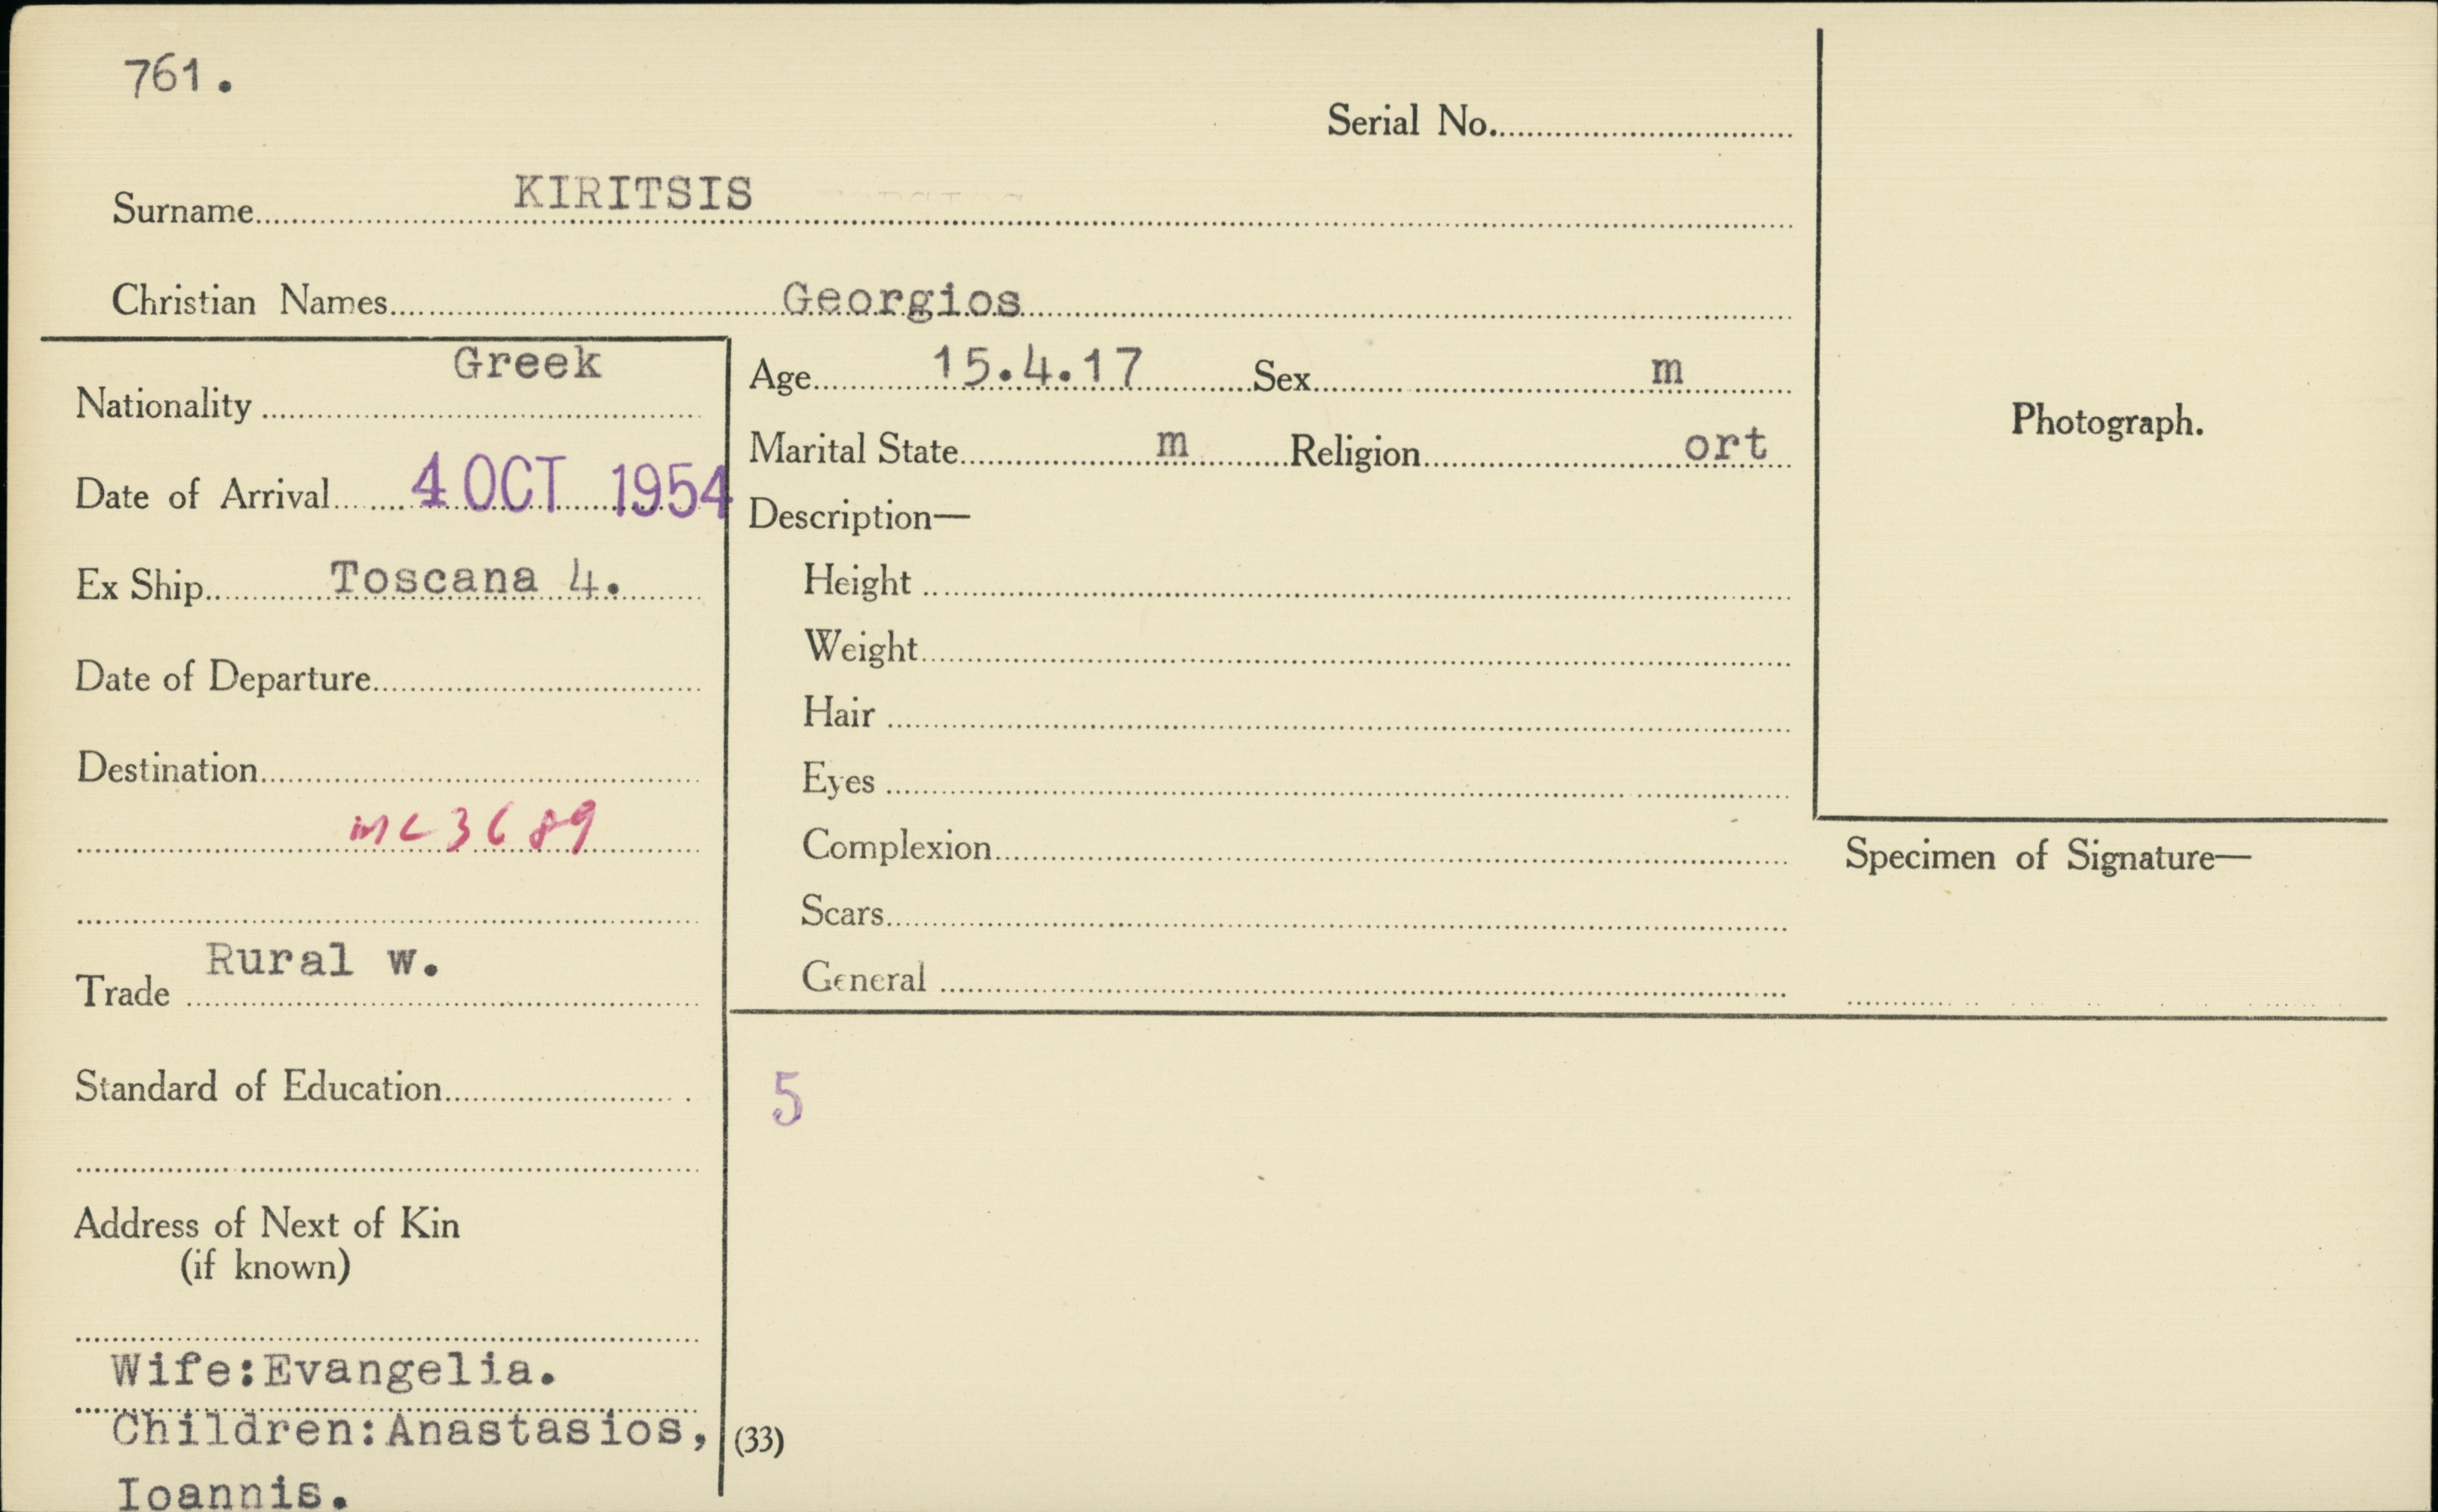 761.
Serial No.
Surname KIRITSIS
Christian Names Georgios
Nationality Greek
Date of Arrival 4 OCT 1954
Ex Ship Toscana 4.
Date of Departure
Destination
mc 3689
Trade Rural w.
Standard of Education
Address of Next of Kin
(if known)
Wife:Evangelia.
Children:Anastasios,
Ioannis.
Age 15.4.17 Sex m
Marital State m Religion ort
Description—
Height
Weight
Hair
Eyes
Complexion
Scars
General
5
(33)
Photograph.
Specimen of Signature—